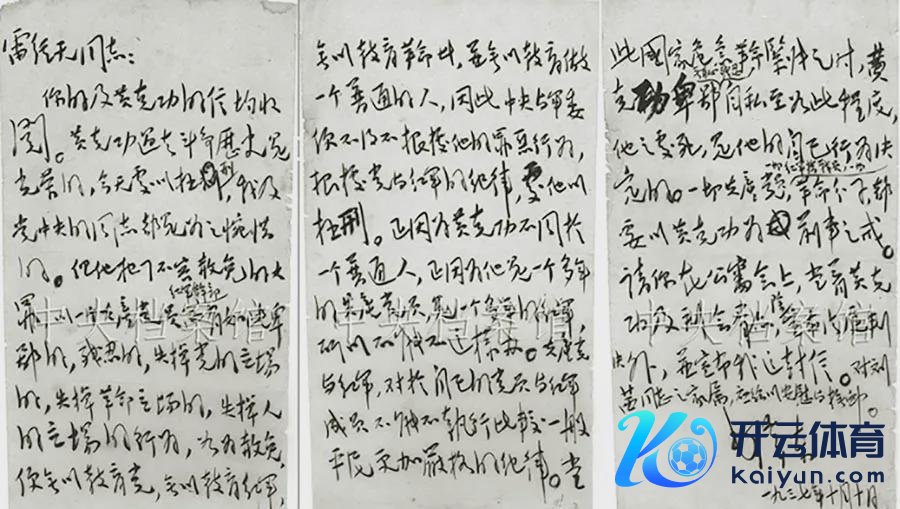 雷经天同志：
你的及黄克功的信均收
阅。黄克功过去斗争历史是
光荣的，今天处以极刑，我及
党中央的同志都是为之惋惜
的。但他犯了不容赦免的大
罪，以一个共产党员红军干部而有如此卑
鄙的，残忍的，失掉党的立场
的，失掉革命立场的，失掉人
的立场的行为，如为赦免，
便无以教育党，无以教育红军，
无以教育革命者，并无以教育做
一个普通的人，因此中央与军委
便不得不根据他的罪恶行为，
根据党与红军的纪律，处他以
极刑。正因为黄克功不同於
一个普通人，正因为他是一个多年
的共产党员，是一个多年的红军，
所以不能不这样办。共产党
与红军，对於自己的党员与红军
成员不能不执行比较一般
平民更加严格的纪律。当
此國家危急革命紧张之时，黄
克功卑鄙无耻残忍自私至如此程度，
他之处死，是他的自己行为决
定的。一切共产党员，一切红军指战员，一切革命分子，都
要以黄克功为前车之戒。
请你在公审会上，当着黄克
功及到会群众，除宣布法庭判
决外，并宣布我这封信。对刘
茜同志之家属，应给以安慰与体恤。
毛泽东
一九三七年十月十日
中央档案馆
中央档案馆
中央档案馆
开云体育
Kaiyun.com